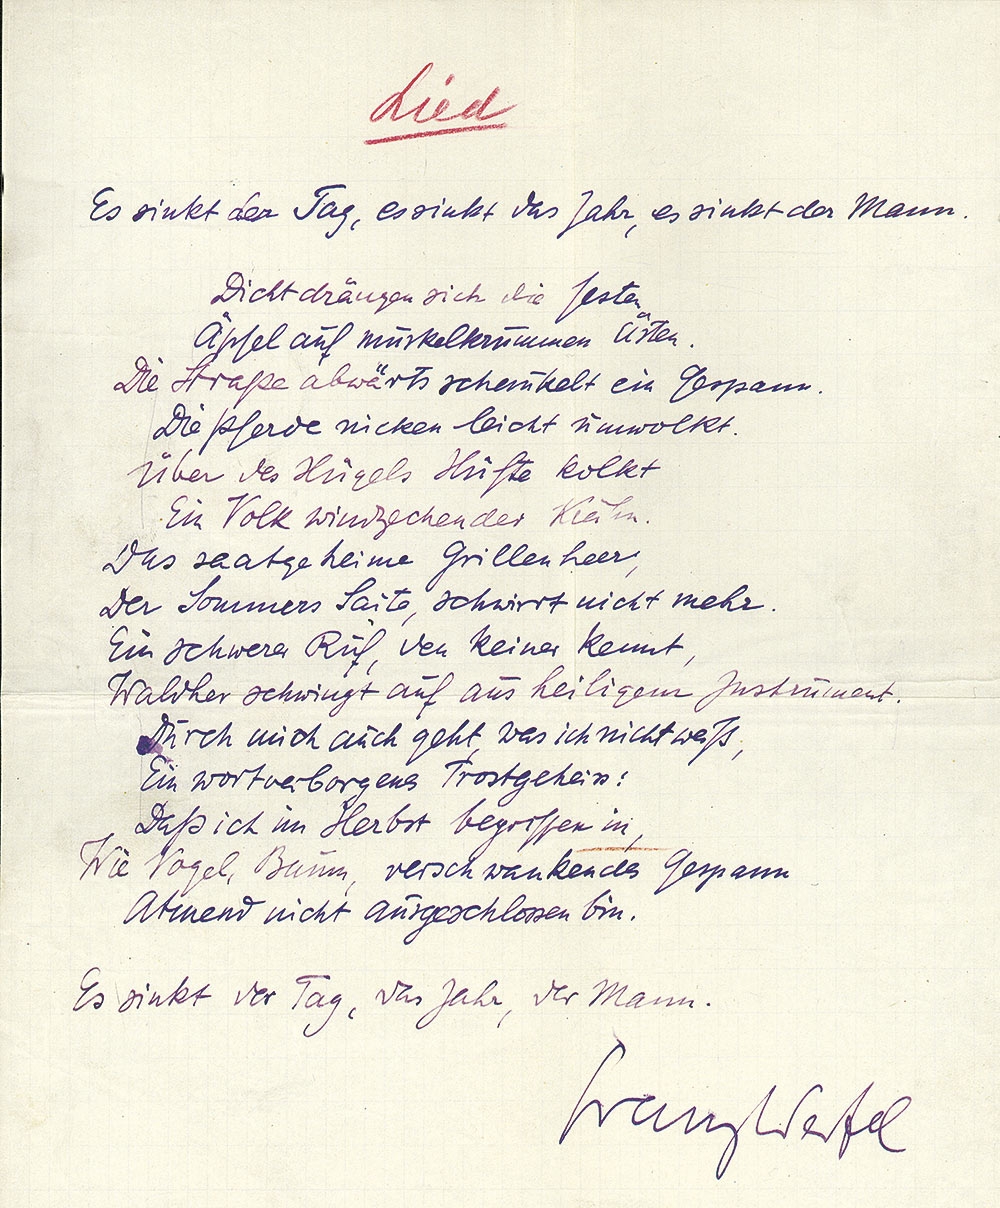 Lied
Es sinkt der Tag, es sinkt das Jahr, es sinkt der Mann.
Dicht drängen sich die festen
Äpfel auf muskelkrummen Ästen.
Die Straße abwärts schaukelt ein Gespann.
Die Pferde nicken leicht umwolkt.
Über des Hügels Hüfte kolkt
Ein Volk windzechender Krähn.
Das saatgeheime Grillenheer,
Der Sommers Saite, schwirrt nicht mehr.
Ein schwerer Ruf, den keiner kennt,
Waldher schwingt auf aus heiligem Instrument.
Durch mich auch geht, was ich nicht weiß,
Ein wortverborgenes Trostgeheiss:
Daß ich im Herbst begriffen in,
Wie Vogel, Baum, verschwankendes Gespann
Atmend nicht ausgeschlossen bin.
Es sinkt der Tag, das Jahr, der Mann.
Franz Werfel